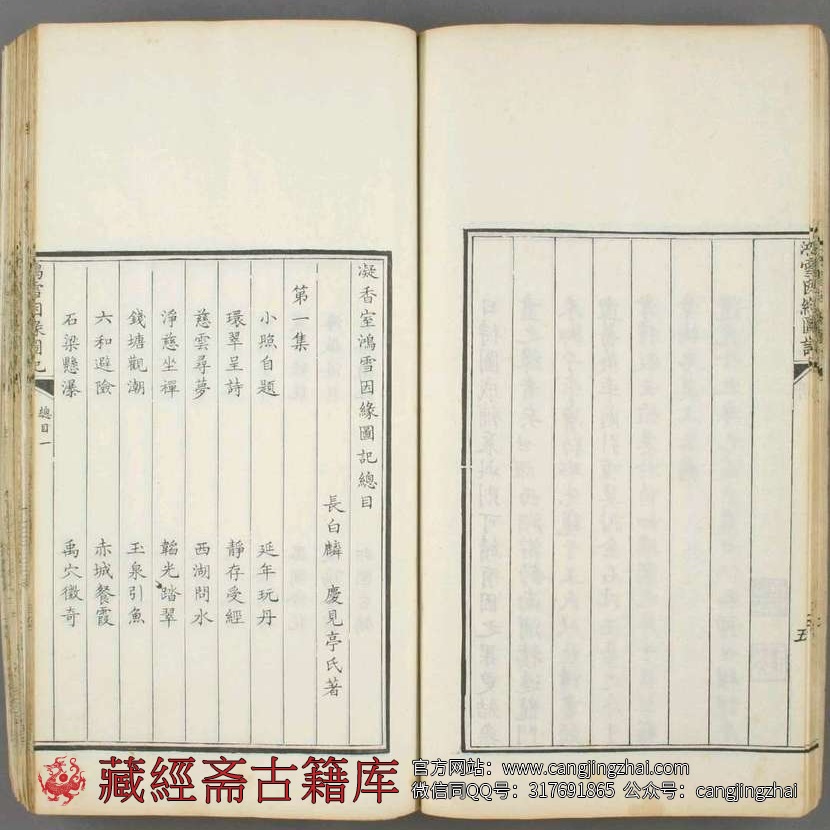 鴻雪因緣圖記
五
凝香室鴻雪因緣圖記總目
長白麟 慶見亭氏著
第一集
小照自題 延年玩丹
環翠呈詩 靜存受經
慈雲尋夢 西湖問水
淨慈坐禪 韜光踏翠
錢塘觀潮 玉泉引魚
六和避險 赤城餐霞
石梁懸瀑 禹穴徵奇
鴻雪因緣圖記
總目一
藏經斋古籍库
官方网站：www.cangjingzhai.com
微信同QQ号：317691865 公众号：cangjingzhai